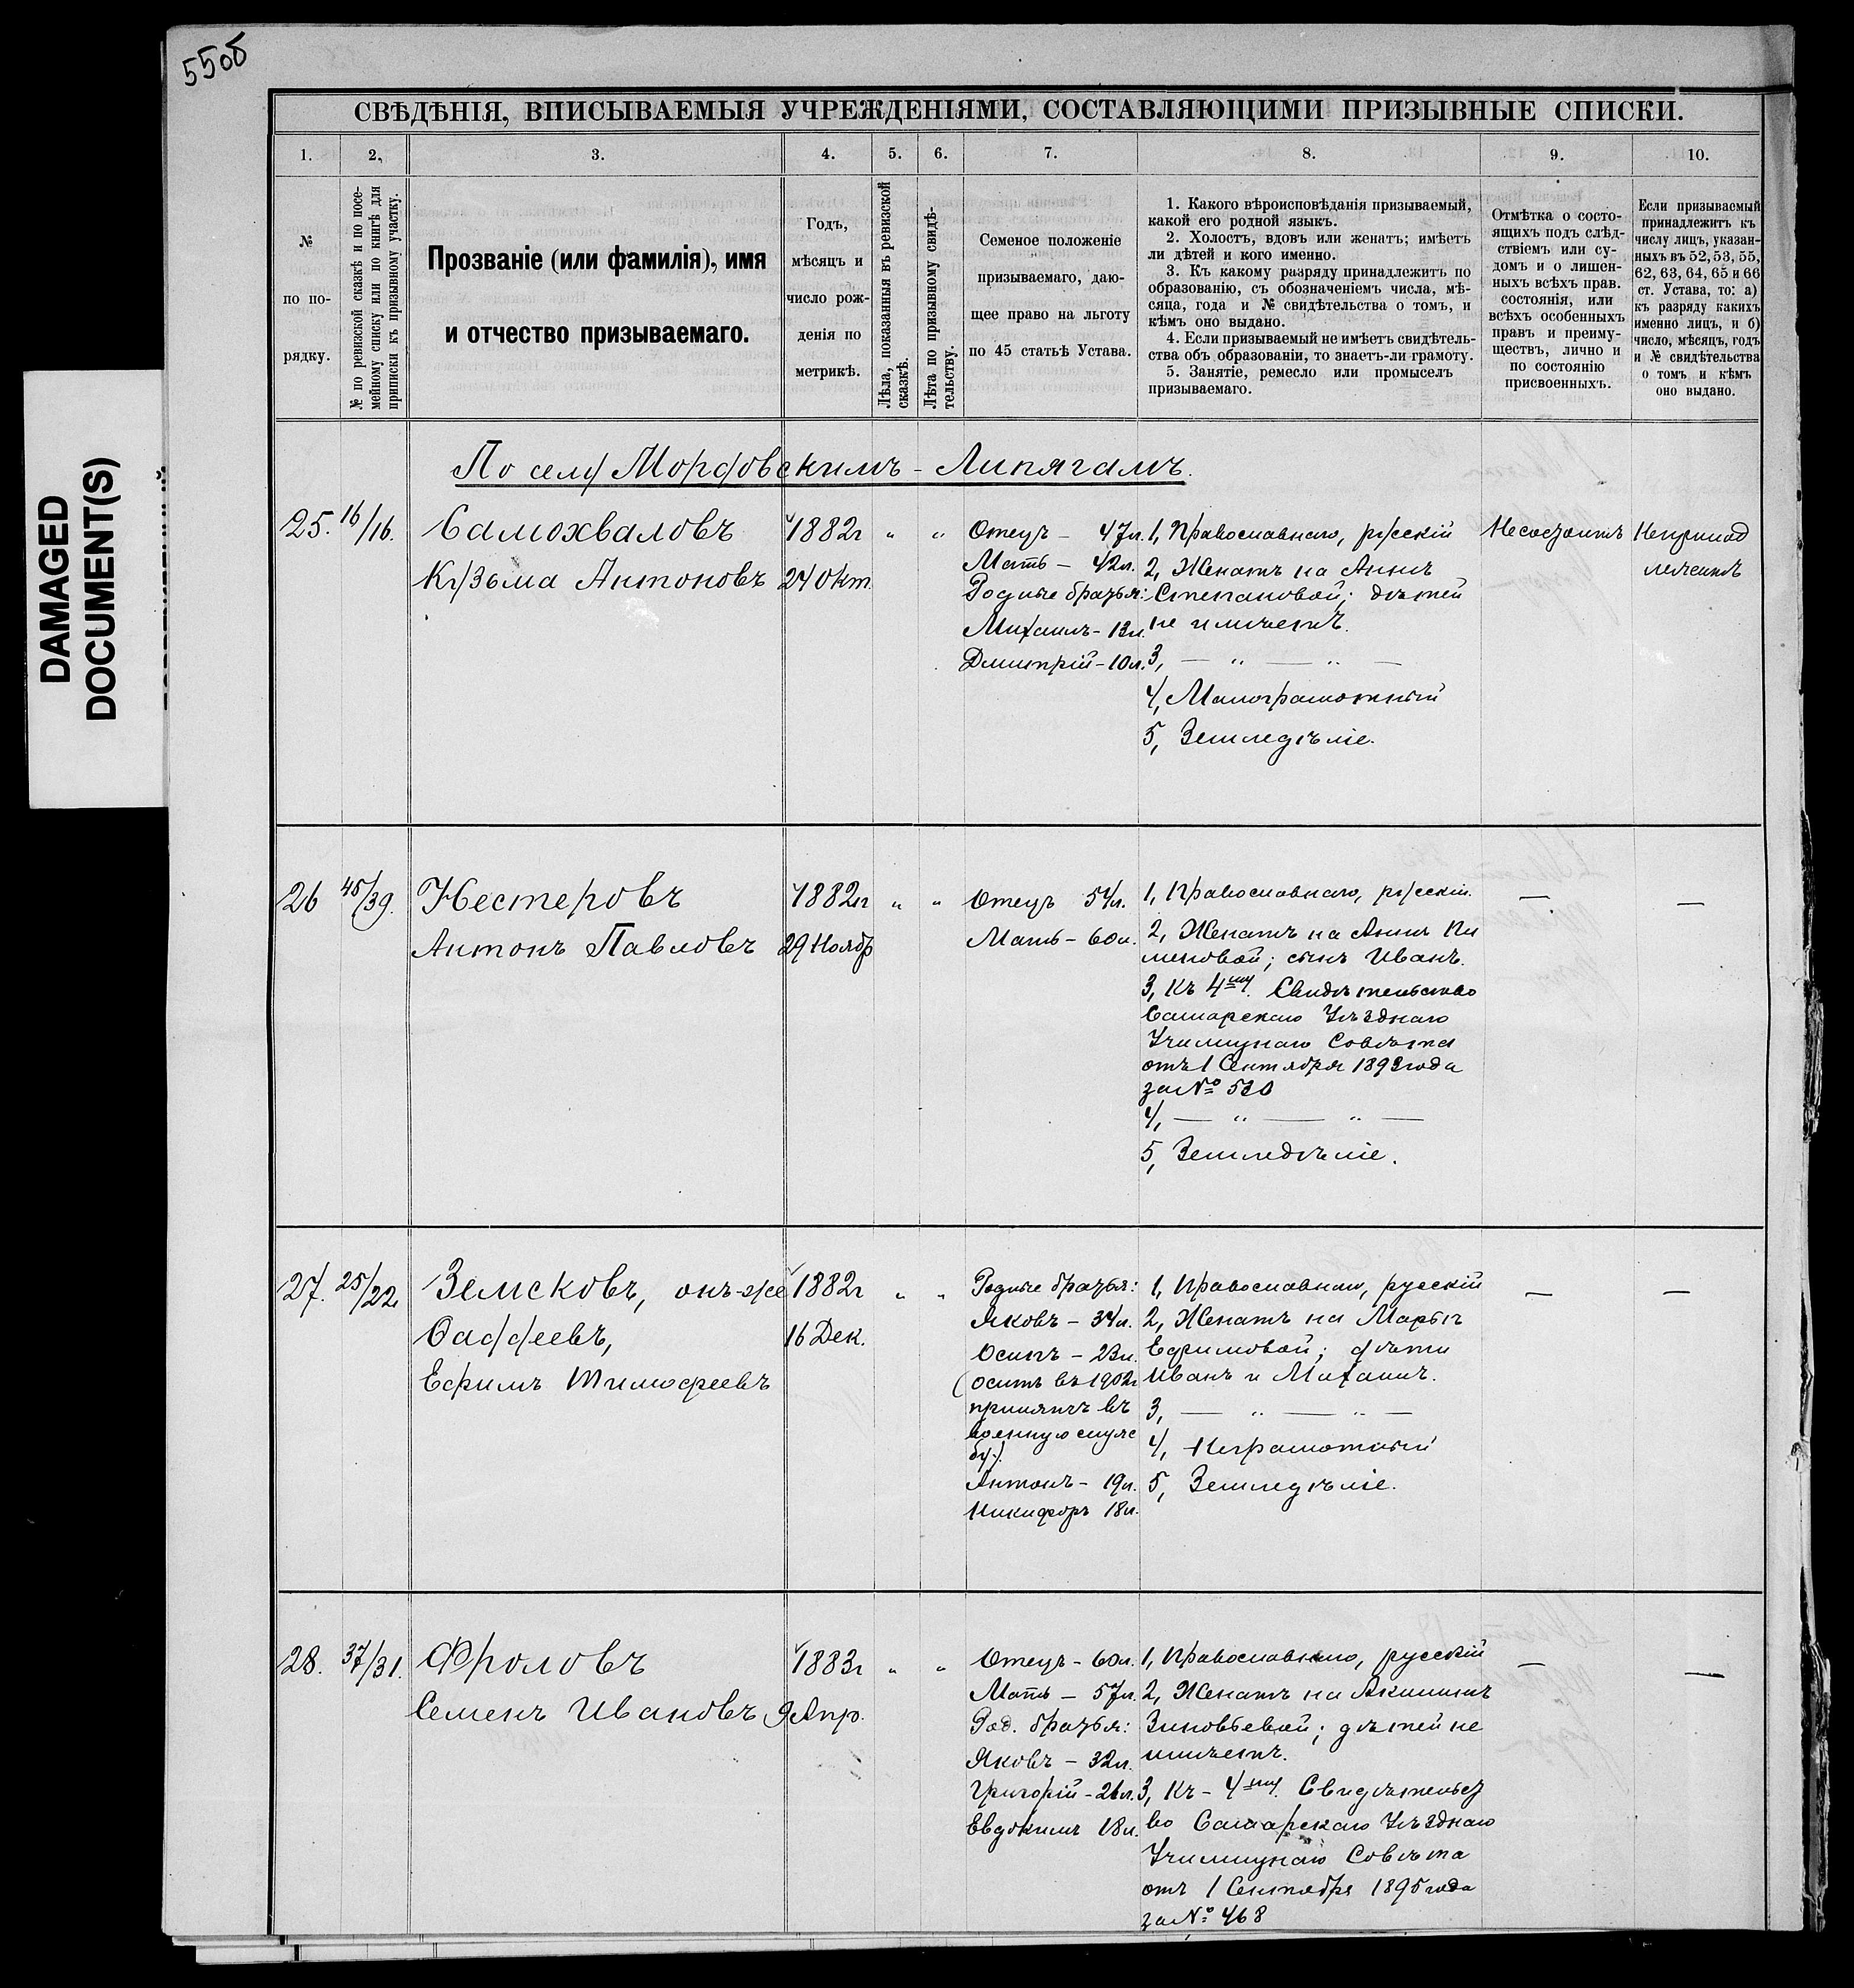 55об
DAMAGED
DOCUMENT(S)
СВѢДѢНІЯ, ВПИСЫВАЕМЫЯ УЧРЕЖДЕНІЯМИ, СОСТАВЛЯЮЩИМИ ПРИЗЫВНЫЕ СПИСКИ.
1. 2. 3. 4. 5. 6. 7. 8. 9. 10.
№
по по-
рядку.
№ по ревизской сказкѣ и по посе-
мейному списку или по книгѣ для
приписки къ призывному участку.
Прозваніе (или фамилія), имя
и отчество призываемаго.
Годъ,
мѣсяцъ и
число рож-
денія по
метрикѣ.
Лѣла, показанныя въ ревизской
сказкѣ.
Лѣта по призывному свидѣ-
тельству.
Семеное положеніе
призываемаго, даю-
щее право на льготу
по 45 статьѣ Устава.
1. Какого вѣроисповѣданія призываемый,
какой его родной языкъ.
2. Холостъ, вдовъ или женатъ; имѣетъ
ли дѣтей и кого именно.
3. Къ какому разряду принадлежитъ по
образованію, съ обозначеніемъ числа, мѣ-
сяца, года и № свидѣтельства о томъ, и
кѣмъ оно выдано.
4. Если призываемый не имѣетъ свидѣтель-
ства объ образованіи, то знаетъ-ли грамоту.
5. Занятіе, ремесло или промыселъ
призываемаго.
Отмѣтка о состо-
ящихъ подъ слѣд-
ствіемъ или су-
домъ и о лишен-
ныхъ всѣхъ прав.
состоянія, или
всѣхъ особенныхъ
правъ и преиму-
ществъ, лично и
по состоянію
присвоенныхъ.
Если призываемый
принадлежитъ къ
числу лицъ, указан-
ныхъ въ 52, 53, 55,
62, 63, 64, 65 и 66
ст. Устава, то: а)
къ разряду какихъ
именно лицъ, и б)
число, мѣсяцъ, годъ
и № свидѣтельства
о томъ и кѣмъ
оно выдано.
По селу Мордовскимъ - Липягамъ.
25. 16/16.
Самохваловъ
Кузьма Антоновъ
1882г
24 Окт.
" "
Отецъ - 47л.
Мать - 42л.
Родные братья:
Михаилъ - 13л.
Дмитрій - 10л.
1, Православнаго, русскій
2, Женатъ на Аннѣ
Степановой; дѣтей
не имѣетъ.
3, — " — " —
4, Малограмотный
5, Земледѣліе.
Несостоитъ
Непринад
лежитъ
26 45/39.
Нестеровъ
Антонъ Павловъ
1882г
29 Ноябр
" "
Отецъ 54л.
Мать - 60л.
1, Православнаго, русскій.
2, Женатъ на Аннѣ Пи
меновой; сынъ Иванъ.
3, Къ 4му. Свидѣтельство
Самарскаго Уѣзднаго
Училищнаго Совѣта
отъ 1 Сентября года
за №
4, — " — " —
5, Земледѣліе.
—
—
27. 25/22
Земсковъ, онъ-же
Фаддеевъ,
Ефимъ Тимофеевъ
1882г
16 Дек.
" "
Родные братья:
Яковъ - 34л.
Осипъ - 23л.
(Осипъ въ 1902г
принятъ въ
военную служ
бу.)
Антонъ - 19л.
Никифоръ 18л.
1, Православнаго, русскій
2, Женатъ на Марьѣ
Ефимовой; дѣти
Иванъ и Михаилъ.
3, — " — " —
4, Неграмотный
5, Земледѣліе.
—
—
28. 37/31.
Фроловъ
Семенъ Ивановъ
1883г
9 Апр.
" "
Отецъ - 60л.
Мать - 57л.
Род. братья:
Яковъ - 32л.
Григорій - 26л.
Евдокимъ 18л.
1, Православнаго, русскій
2, Женатъ на Акилинѣ
Зиновьевой; дѣтей не
имѣетъ.
3, Къ - 4му. Свидѣтельст
во Самарскаго Уѣзднаго
Училищнаго Совѣта
отъ 1 Сентября 1895 года
за № 468
—
—